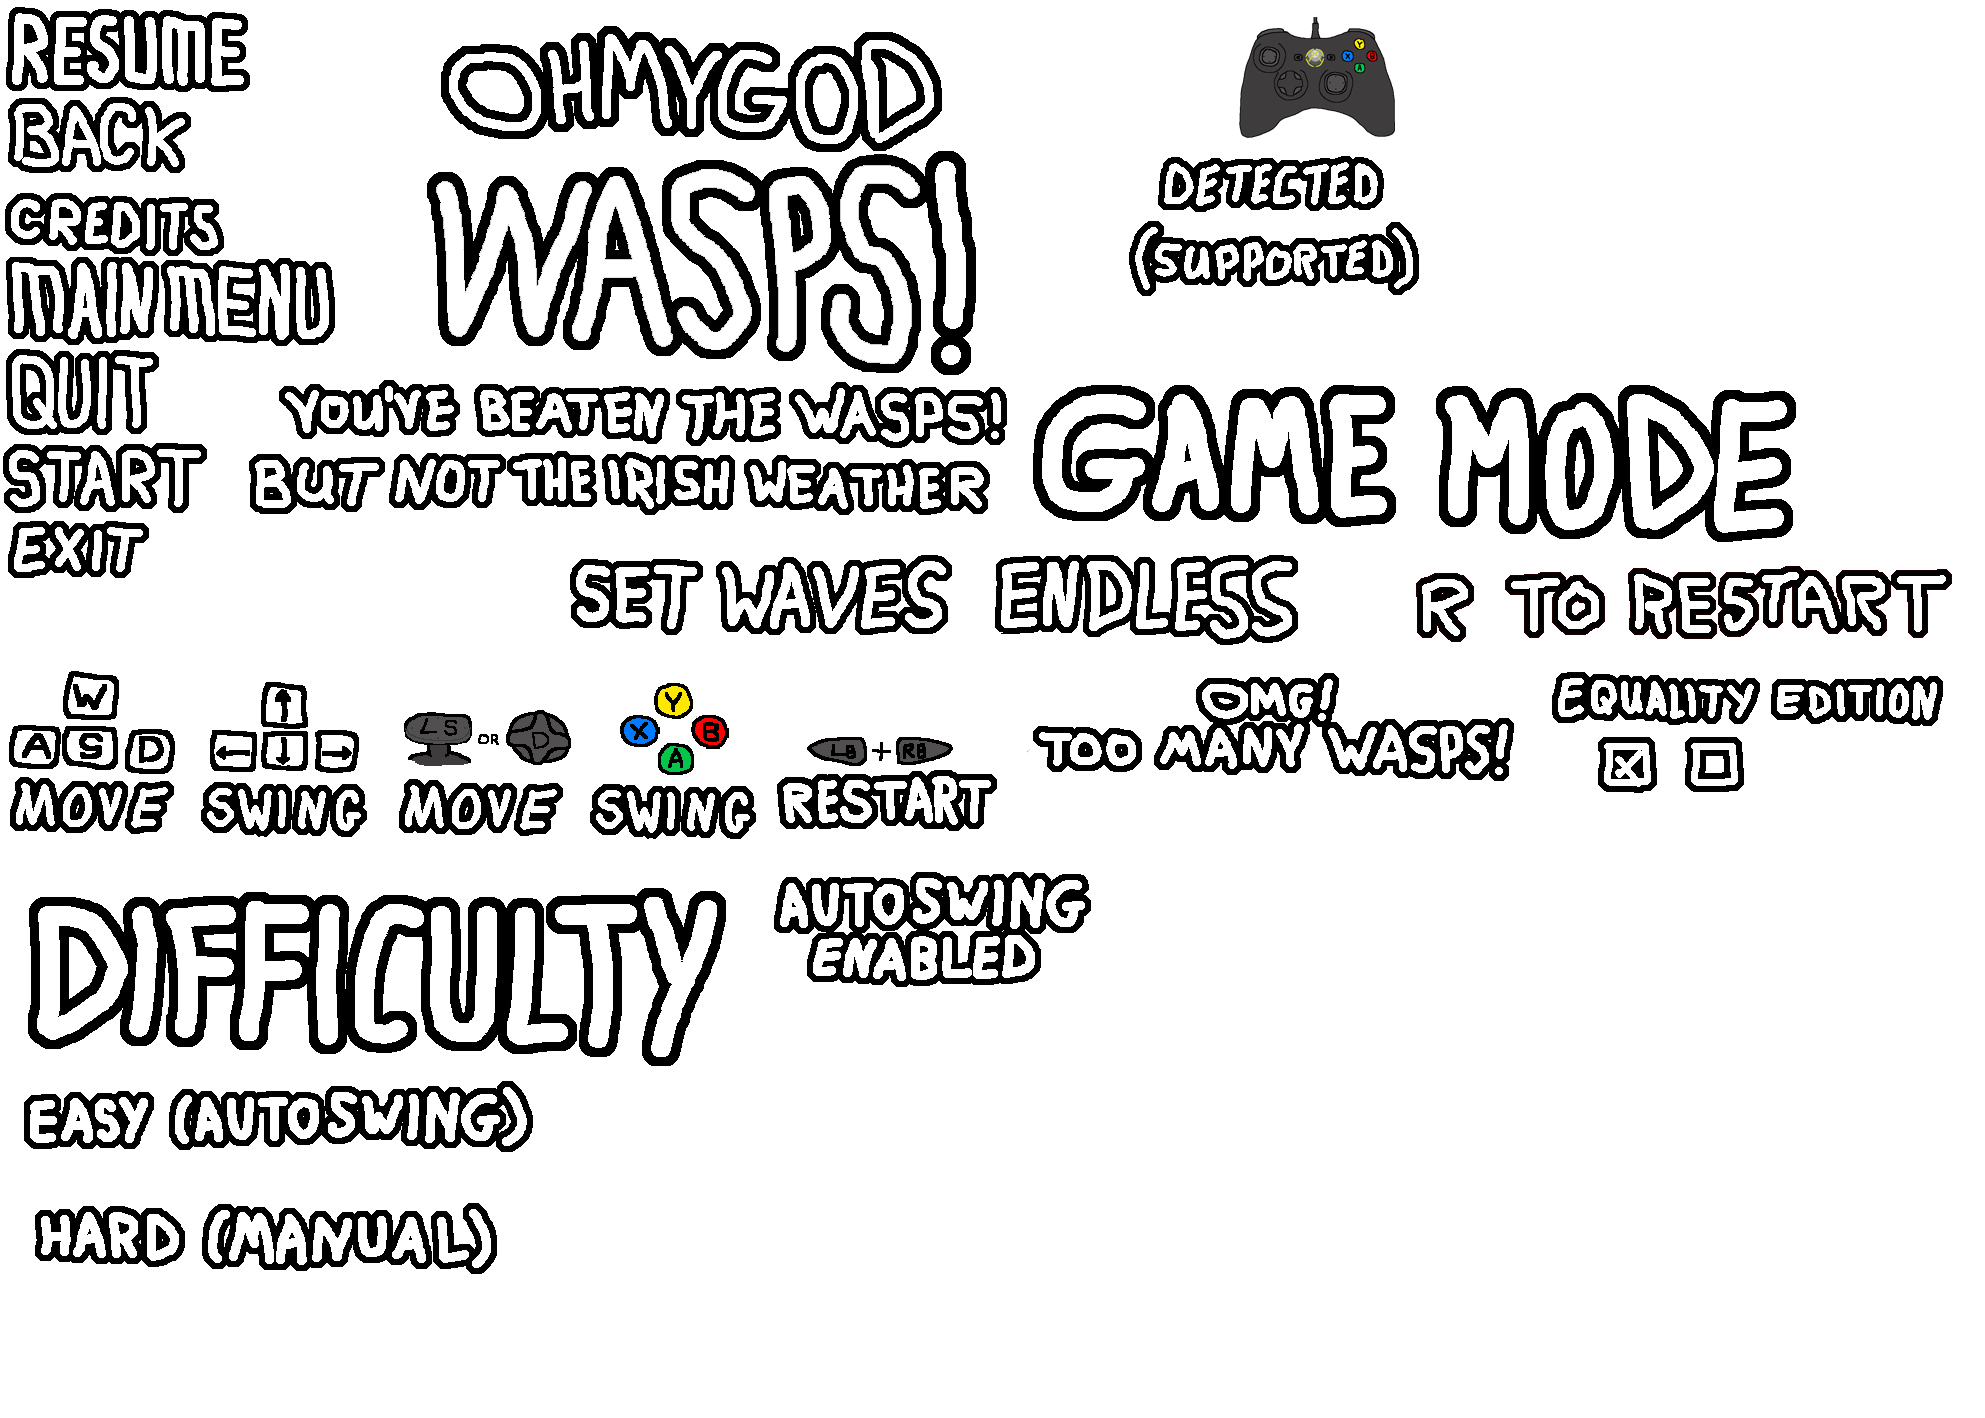 RESUME
BACK
CREDITS
MAIN MENU
QUIT
START
EXIT
OHMYGOD
WASPS!
Y
X B
A
DETECTED
(SUPPORTED)
YOU'VE BEATEN THE WASPS!
BUT NOT THE IRISH WEATHER
GAME MODE
SET WAVES ENDLESS
R TO RESTART
W
A S D
MOVE
↑
← ↓ →
SWING
LS OR D
MOVE
Y
X B
A
SWING
LB + RB
RESTART
OMG!
TOO MANY WASPS!
EQUALITY EDITION
DIFFICULTY
AUTOSWING
ENABLED
EASY (AUTOSWING)
HARD (MANUAL)